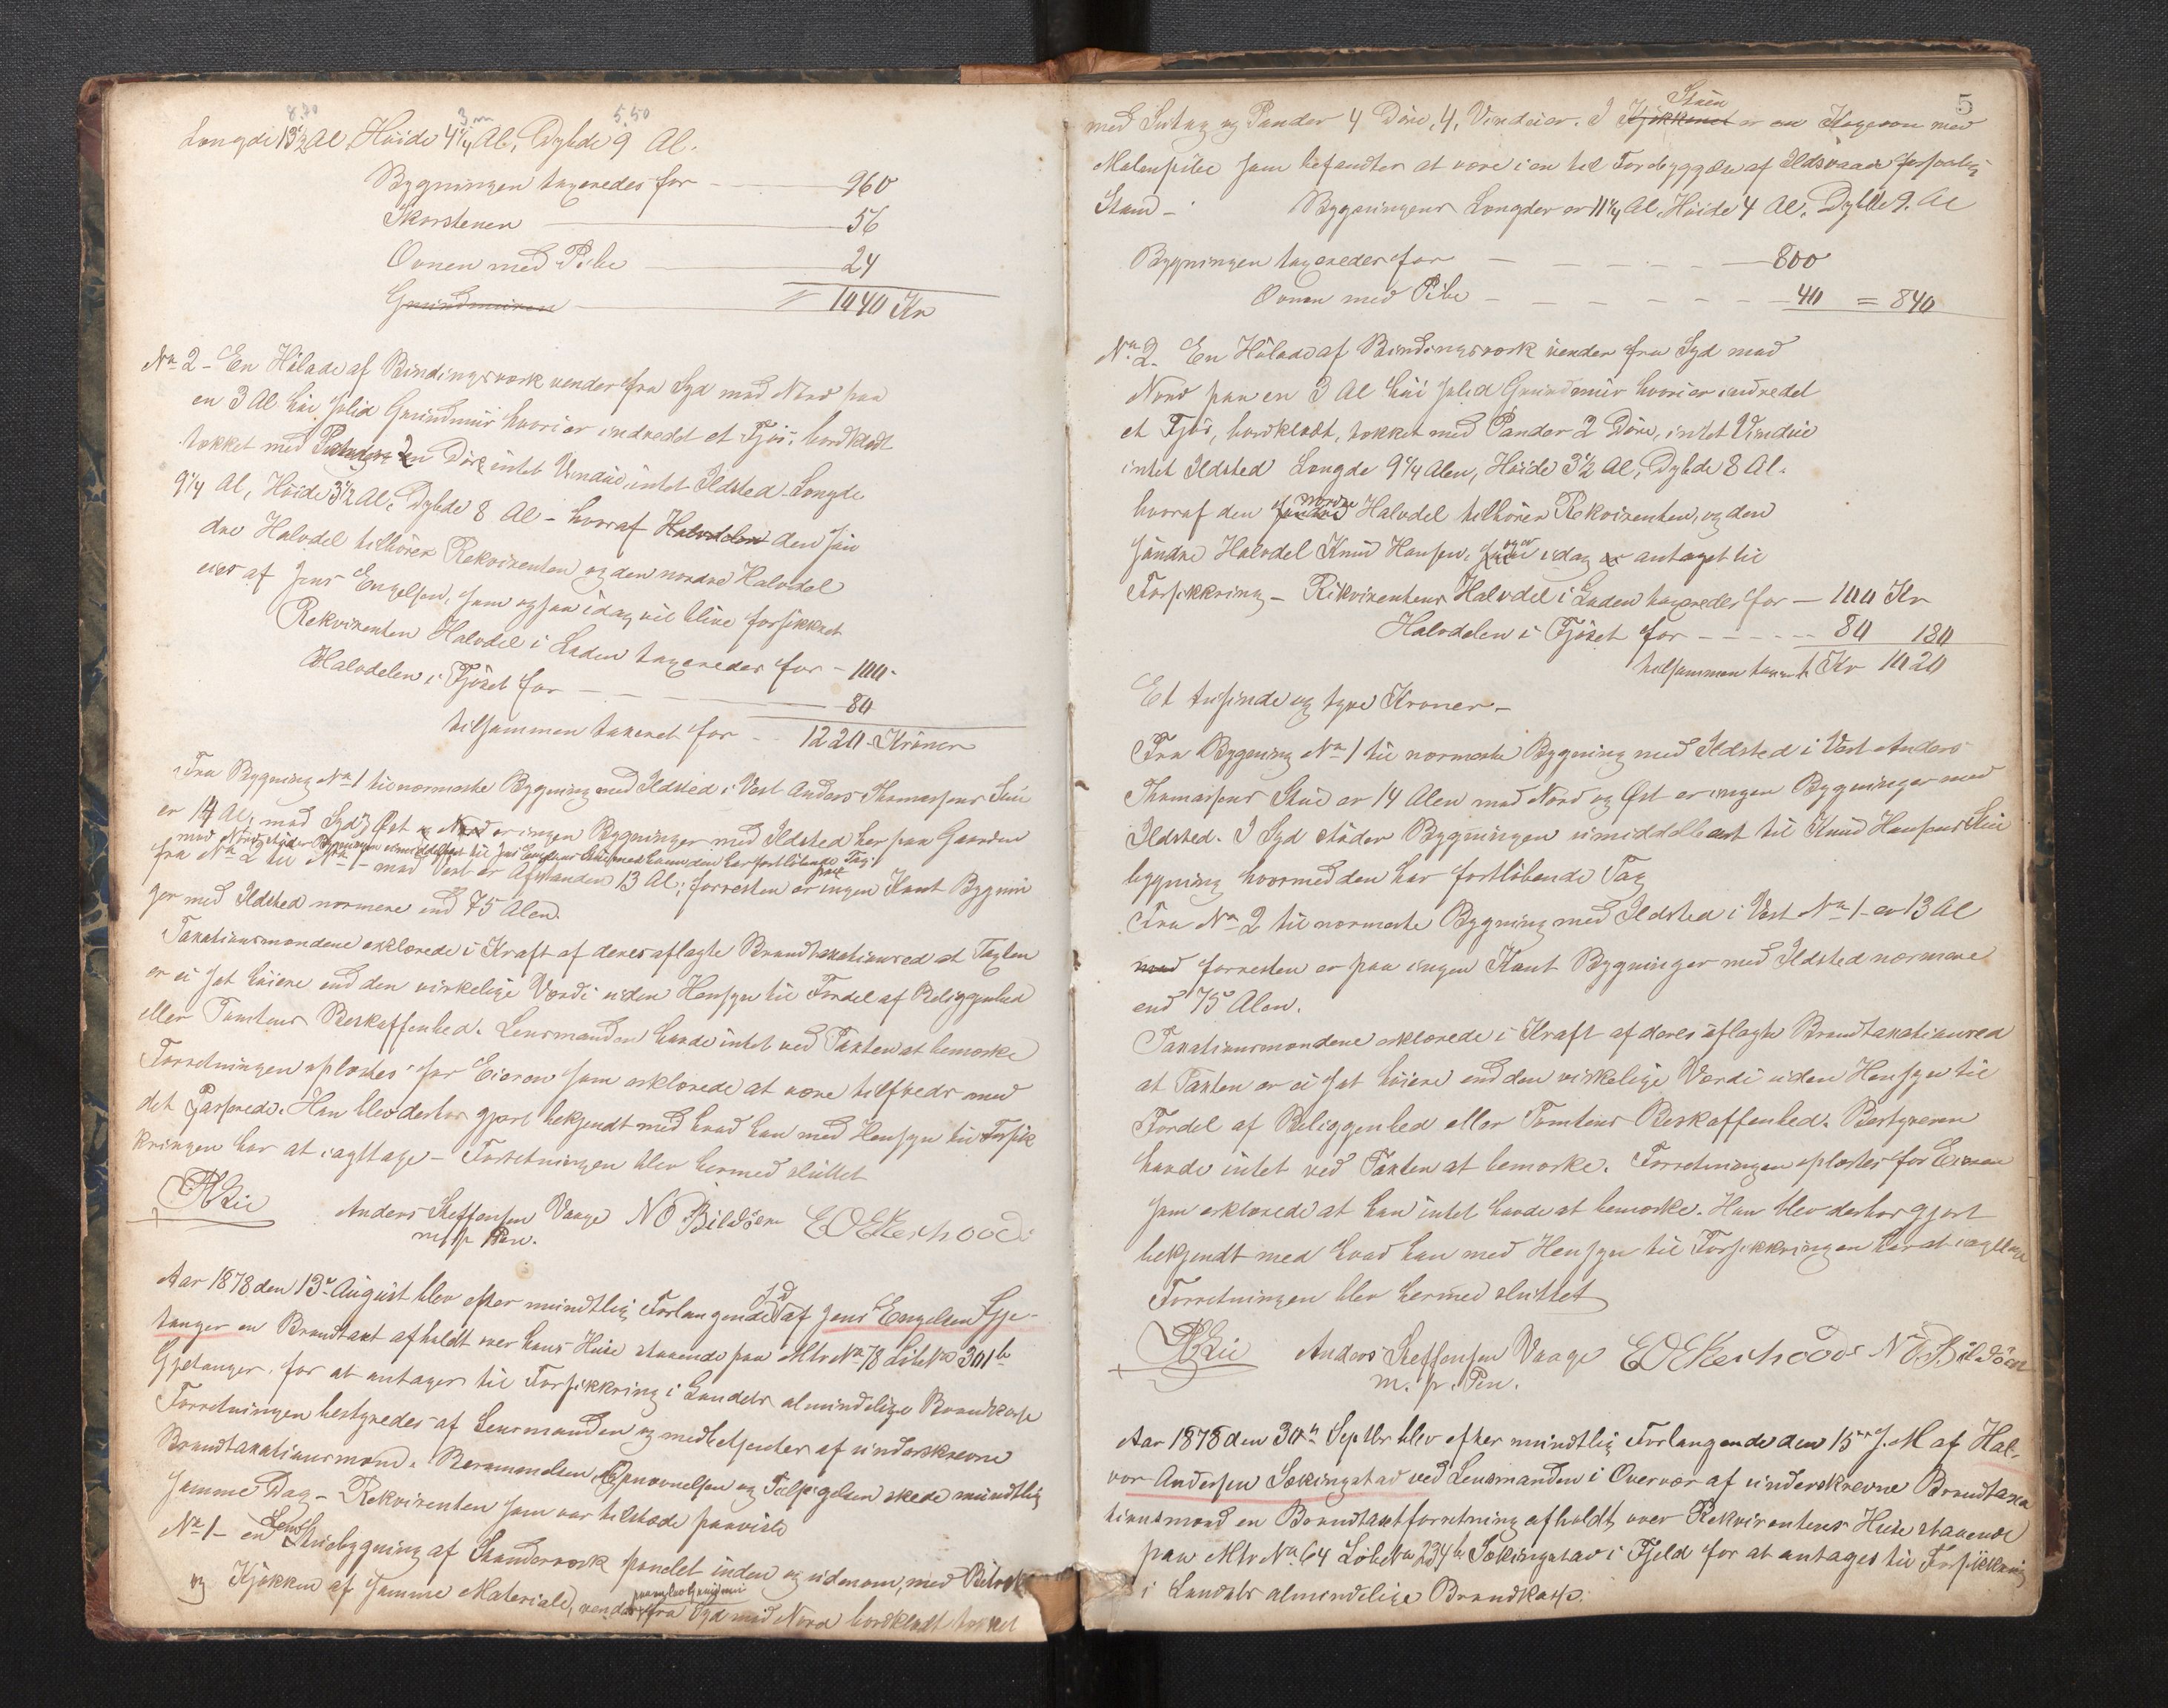 8.70 3 m 5.50
Længde 13½ Al Høide 4¼ Al, Dybde 9 Al.
Bygningen taxeredes for — 960
Skorstenen — 56
Ovnen med Pibe — 24
Grundmuren — = 1040 Kr
No 2 - En Hølade af Bindingsværk vender fra Syd mod Nord paa
en 3 Al høi solid Grundmuur hvori er indredet et Fjøs, bordklædt
tækket med Dør intet Vindue, intet Ildsted. Længde
9¼ Al, Høide 3½ Al, Dybde 8 Al - hvoraf Halvdelen den søn
dre Halvdel tilhører Rekvirenten og den nordre Halvdel
eies af Jens Engelsen, som ogsaa idag vil blive forsikkret
Rekvirenten Halvdel i Laden taxeredes for - 100.
Halvdelen i Fjøset for — 80
tilsammen taxeret for - 1220 - Kroner
Fra Bygning No 1 til nærmeste Bygning med Ildsted i Vest Anders Thomassens Stue
er 14 Al, mod Syd, Øst og Nord er ingen Bygninger med Ildsted her paa Gaarden
mod Nord støder Bygningen umiddelbart til Jens Engelsens Stue med hvem den har fortløbende Tag.
fra No 2 til No 1 - mod Vest er Afstanden 13 Al; forresten er paa ingen Kant Bygnin
ger med Ildsted nærmere end 75 Alen.
Taxationsmændene erklærede i Kraft af deres aflagte Brandtaxationsed at Taxten
er ei sat høiere end den virkelige Værdi uden Hensyn til Fordel af Beliggenhed
eller Tomtens Beskaffenhed. Lensmanden havde intet ved Taxten at bemærke
Forretningen oplæstes for Eieren som erklærede at være tilfreds med
det Passerede. Han blev derhos gjort bekjendt med hvad han med Hensyn til Forsik
kringen har at iagttage - Forretningen blev hermed sluttet
Anders Steffensen Vaage NO Bildøen EO Ekerhovd
m p Pen.
Aar 1878 den 13de August blev efter mundtlig Forlangende af Jens Engelsen Gje-
tanger en Brandtaxt afholdt over hans Huse staaende paa Mtr No 78 Løbe No 301 b
Gjetanger, for at antages til Forsikkring i Landets almindelige Brandkasse
Forretningen bestyredes af Lensmanden og medbetjentes af underskrevne
Brandtaxationsmænd. Berammelsen, Opnævnelsen og Tilsigelsen skede mundtlig
samme Dag - Rekvirenten som var tilstæde paaviste
No 1 - en Stuebygning af Standerværk panelet inden og udenom, med
og Kjøkken af samme Materiale, vender fra Syd mod Nord bordklædt tækket
5
med Sutag og Pander 4 Døre, 4, Vinduer. I Stuen Kjøkkenet er en Kogeovn med
Malmpibe som befandtes at være i en til Forebyggelse af Ildsvaade forsvarlig
Stand - Bygningens Længder er 11¼ Al. Høide 4 Al. Dybde 9. Al
Bygningen taxeredes for — 800
Ovnen med Pibe — 40 = 840
No 2. En Hølade af Bindingsværk vender fra Syd mod
Nord paa en 3 Al høi solid Grundmuur hvori er indredet
et Fjøs, bordklædt, tækket med Pander 2 Døre, intet Vindue
intet Ildsted Længde 9¼ Alen, Høide 3½ Al, Dybde 8 Al.
hvoraf den nordre Halvdel tilhører Rekvirenten, og den
søndre Halvdel Knud Hansen, og er idag antaget til
Forsikkring - Rekvirentens Halvdel i Laden taxeredes for — 100 Kr
Halvdelen i Fjøset for — 80 180
tilsammen taxert Kr 1020
Et tusinde og tyve Kroner -
Fra Bygning No 1 til nærmeste Bygning med Ildsted i Vest Anders
Thomassens Stue er 14 Alen mod Nord og Øst er ingen Bygninger med
Ildsted. I Syd støder Bygningen umiddelbart til Knud Hansens Stue
bygning hvormed den har fortløbende Tag
Fra No 2 til nærmeste Bygning med Ildsted i Vest No 1 - er 13 Al
mod forresten er paa ingen Kant Bygninger med Ildsted nærmere
end 75 Alen.
Taxationsmændene erklærede i Kraft af deres aflagte Brandtaxationsed
at Taxten er ei sat høiere end den virkelige Værdi uden Hensyn til
Fordel af Beliggenhed eller Tomtens Beskaffenhed. Bestyreren
havde intet ved Taxten at bemærke. Forretningen oplæstes for Eieren
som erklærede at han intet havde at bemærke. Han blev derhos gjort
bekjendt med hvad han med Hensyn til Forsikkringen har at iagttage
Forretningen blev hermed sluttet
Anders Steffensen Vaage EO Ekerhovd NO Bildøen
m. p. Pen.
Aar 1878 den 30te Septbr blev efter mundtlig Forlangende den 15de J. M af Hal-
vor Andersen Sækingstad ved Lensmanden i Overvær af underskrevne Brandtaxa
tionsmænd en Brandtaxtforretning afholdt over Rekvirentens Huse staaende
paa Mtr No 64 Løbe No 234 b Sækingstad i Fjeld for at antages til Forsikkring
i Landets almindelige Brandkasse.